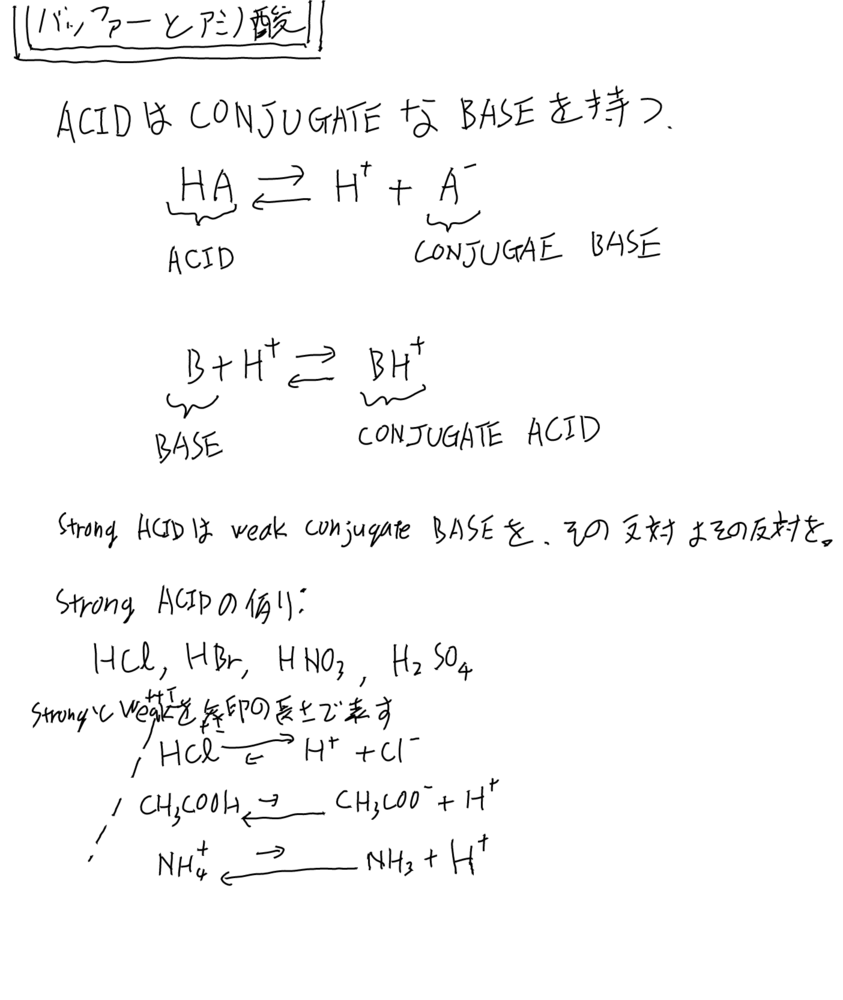 バッファーとアミノ酸
ACIDは CONJUGATE な BASE を持つ.
HA ⇄ H⁺ + A⁻
ACID CONJUGAE BASE
B + H⁺ ⇄ BH⁺
BASE CONJUGATE ACID
Strong ACIDは weak conjugate BASE を、その反対はその反対を。
Strong ACIDの例:
HCl, HBr, HNO₃, H₂SO₄
StrongとWeakを矢印の長さで表す
HCl ⇄ H⁺ + Cl⁻
CH₃COOH ⇄ CH₃COO⁻ + H⁺
NH₄⁺ ⇄ NH₃ + H⁺